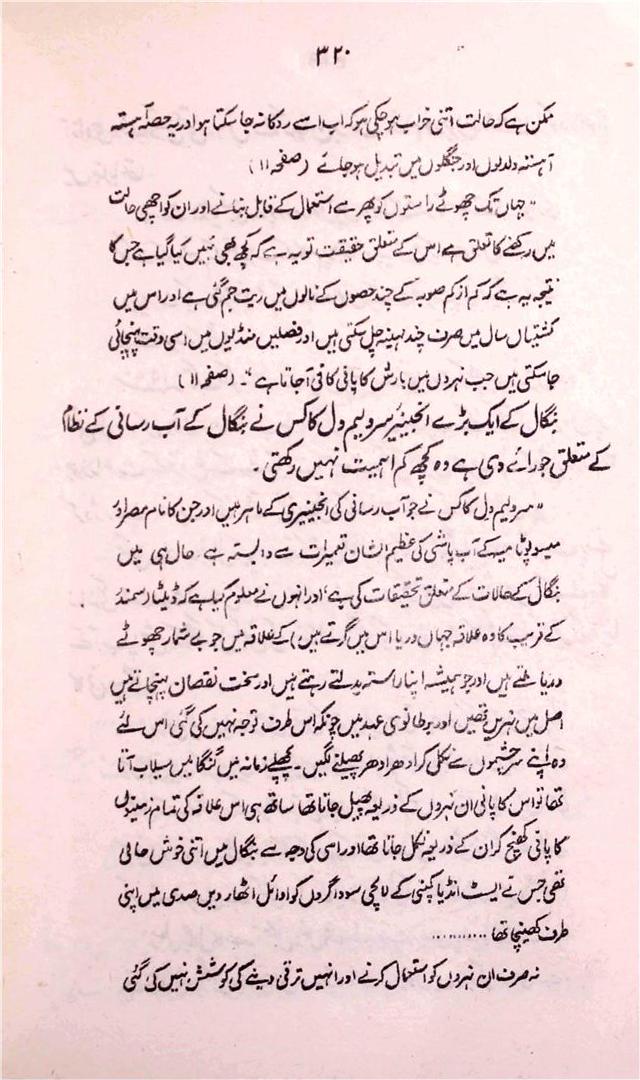 ۳۲۰
ممکن ہے کہ حالت اتنی خراب ہو چکی ہو کہ اب اسے روکا نہ جا سکتا ہو اور یہ حصہ آہستہ
آہستہ دلدلوں اور جنگلوں میں تبدیل ہو جائے (صفحہ ۱۱)
"جہاں تک چھوٹے راستوں کو پھر سے استعمال کے قابل بنانے اور ان کو اچھی حالت
میں رکھنے کا تعلق ہے اس کے متعلق حقیقت تو یہ ہے کہ کچھ بھی نہیں کیا گیا ہے جس کا
نتیجہ یہ ہے کہ کم از کم صوبہ کے چند حصوں کے نالوں میں ریت جم گئی ہے اور اس میں
کشتیاں سال میں صرف چند مہینے چل سکتی ہیں اور فصلیں منڈیوں میں اسی وقت پہنچائی
جا سکتی ہیں جب نہروں میں بارش کا پانی کافی آ جاتا ہے"۔ (صفحہ ۱۱)
بنگال کے ایک بڑے انجینیر سر ولیم ول کاکس نے بنگال کے آب رسانی کے نظام
کے متعلق جو رائے دی ہے وہ کچھ کم اہمیت نہیں رکھتی۔
"سر ولیم ول کاکس نے جو آب رسانی کی انجینیری کے ماہر ہیں اور جن کا نام مصر اور
میسوپوٹامیہ کے آب پاشی کی عظیم الشان تعمیرات سے وابستہ ہے حال ہی میں
بنگال کے حالات کے متعلق تحقیقات کی ہے اور انہوں نے معلوم کیا ہے کہ ڈیلٹا (سمندر
کے قریب کا وہ علاقہ جہاں دریا اس میں گرتے ہیں) کے علاقہ میں جو بے شمار چھوٹے
دریا ملتے ہیں اور جو ہمیشہ اپنا راستہ بدلتے رہتے ہیں اور سخت نقصان پہنچاتے ہیں
اصل میں نہریں تھیں اور برطانوی عہد میں چونکہ اس طرف توجہ نہیں کی گئی اس لئے
وہ اپنے سرچشموں سے نکل کر ادھر ادھر پھیلنے لگیں۔ پچھلے زمانہ میں گنگا میں سیلاب آتا
تھا تو اس کا پانی ان نہروں کے ذریعہ پھیل جاتا تھا ساتھ ہی اس علاقہ کی تمام زمینوں
کا پانی کھنچ کر ان کے ذریعہ نکل جاتا تھا اور اسی کی وجہ سے بنگال میں اتنی خوش حالی
تھی جس نے ایسٹ انڈیا کمپنی کے لالچی سوداگروں کو اوائل اٹھارویں صدی میں اپنی
طرف کھینچا تھا ..........
نہ صرف ان نہروں کو استعمال کرنے اور انہیں ترقی دینے کی کوشش نہیں کی گئی